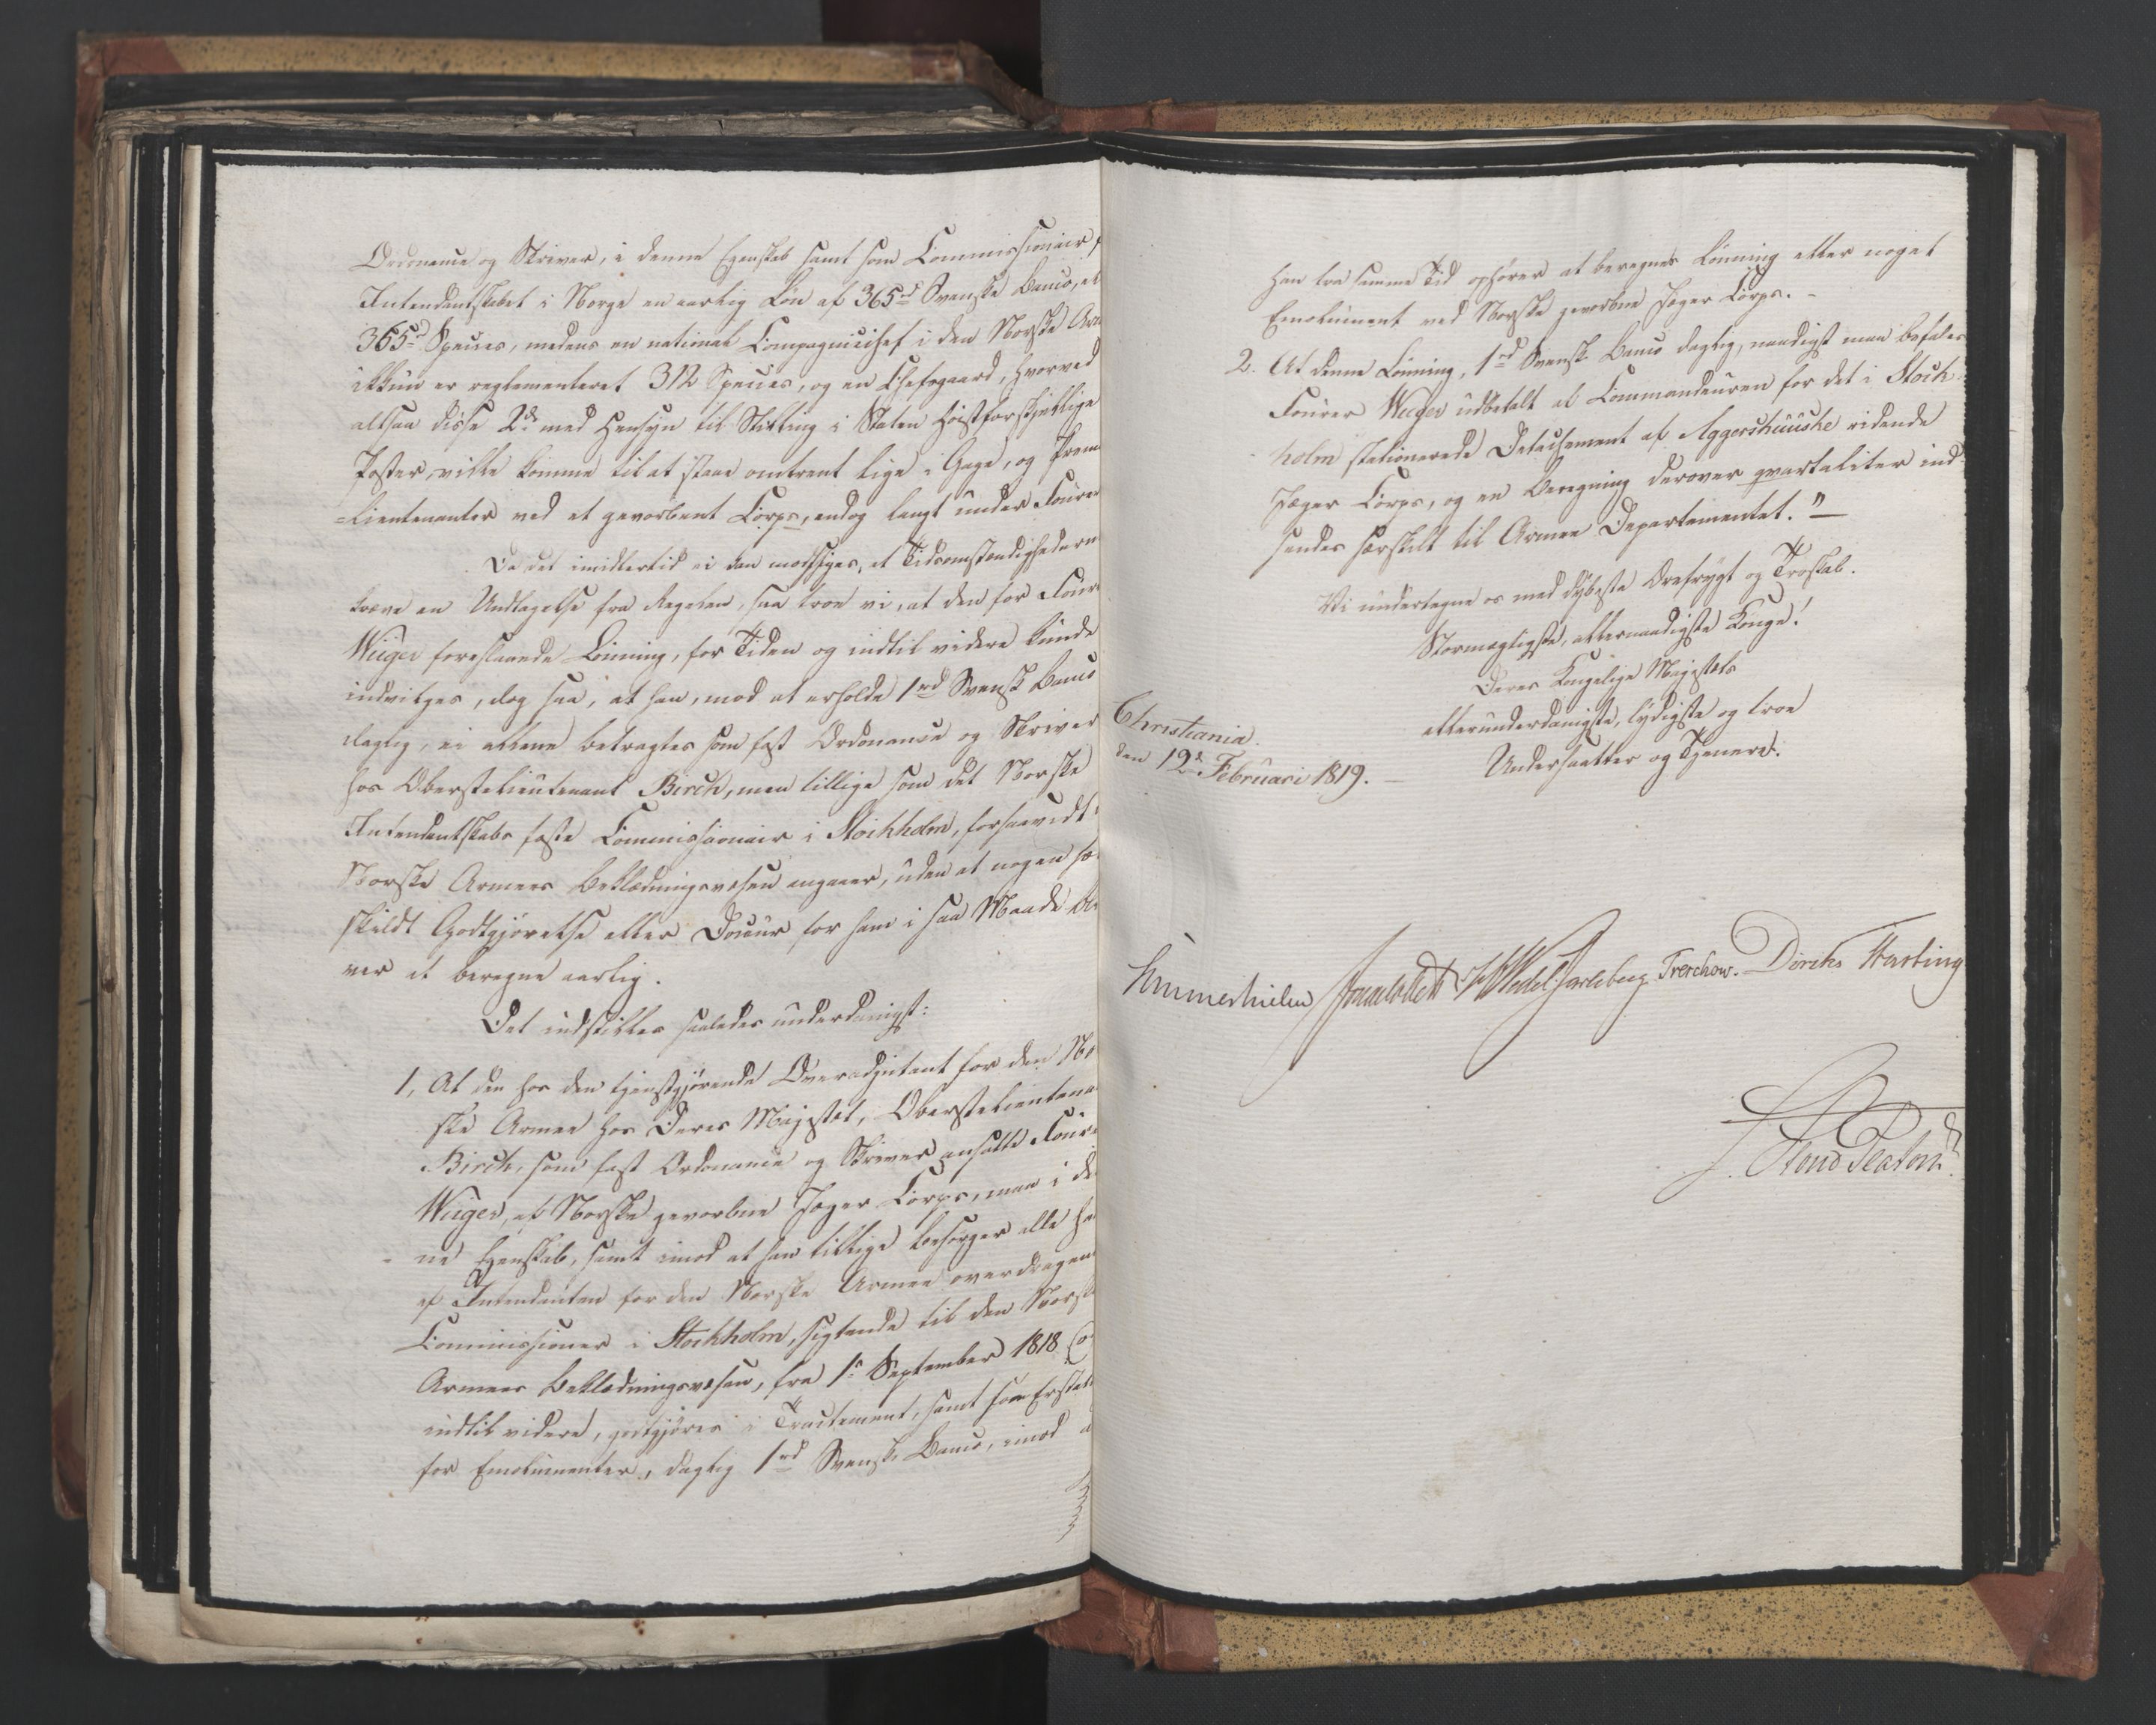 Ordonance og Skriver, i denne Egenskab samt som Commissionair f
Intendantskabet i Norge en aarlig Løn af 365rd Svenske Banco, el
365rd Species, medens en national Compagniechef i den Norske Arm
ikkun er reglementeret 312 Species, og en Chefsgaard, hvorved
altsaa disse 2de med Hensyn til Stilling i Staten høistforskjellige
Poster, ville komme til at staae omtrent lige i Gage, og Prem
=Lieutenanter ved et gevorbent Corps, endog langt under Fourer
Da det imidlertid ei kan modsiges, at Tidsomstændighedern
kræve en Undtagelse fra Regelen, saa troe vi, at den for Four
Wüger foreslaaede Lønning, for Tiden og indtil videre kunde
indvilges, dog saa, at han, mod at erholde 1rd Svensk Banco
daglig, ei allene betragtes som fast Ordonance og Skriver
hos Oberstelieutenant Birch, men tillige som det Norske
Intendantskabs faste Commissionair i Stockholm, forsaavidt
Norske Armees Beklædningsvæsen angaaer, uden at nogen sær
skildt Godtgjørelse eller Douceur for ham i saa Maade bli
ver at beregne aarlig.
Det indstilles saaledes underdanigst:
1, At den hos den tjenstgjørende Overadjutant for den No
ske Armee hos Deres Majestæt, Oberstelieutena
Birch, som fast Ordonance og Skriver ansatte Four
Wüger, af Norske gevorbne Jæger Corps, maa i de
ne Egenskab, samt imod at han tillige besørger alle ha
af Intendanten for den Norske Armee overdragen
Commissioner i Stockholm, sigtende til den Norsk
Armees Beklædningsvæsen, fra 1ste September 1818 o
indtil videre, godtgjøres i Tractement, samt som Erstat
for Emolumenter, daglig 1rd Svensk Banco, imod a
han fra samme Tid ophører at beregnes Lønning eller noget
Emolument ved Norske gevorbne Jæger Corps. -
2. At denne Lønning, 1rd Svensk Banco daglig, naadigst maa befales
Fourer Wüger udbetalt af Commandeuren for det i Stock
holm stationerede Detachement af Aggershuuske ridende
Jæger Corps, og en Beregning derover qvartaliter ind
sendes særskilt til Armee Departementet."
Vi undertegne os med dybeste Ærefrygt og Troskab.
Stormægtigste, allernaadigste Konge!
Deres Kongelige Majestæts
allerunderdanigste, lydigste og troe
Undersaatter og Tjenere.
Christiania.
den 12te Februari 1819.
Sommerhielm Jonas Collett HWedel Jarlsberg Treschow. Diriks Hasting